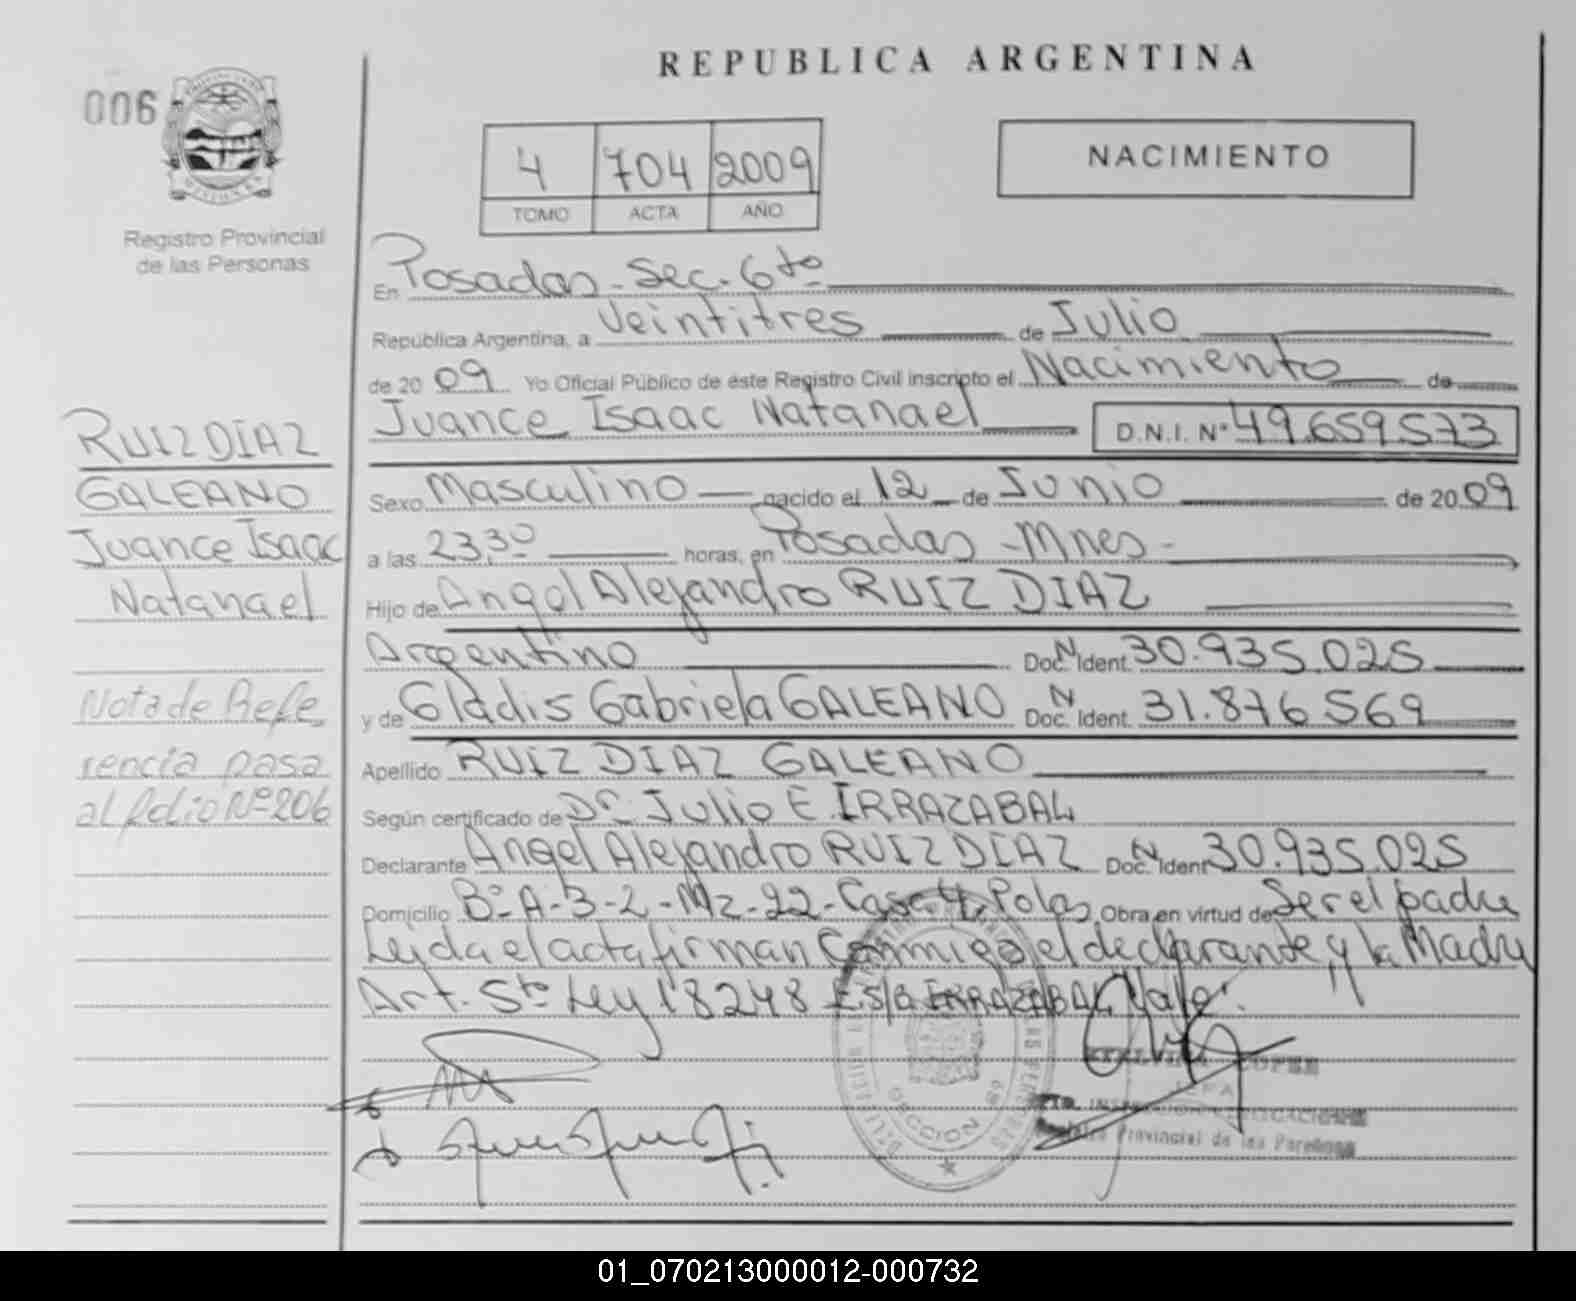 REPUBLICA ARGENTINA
006
4 704 2009
TOMO ACTA AÑO
NACIMIENTO
Registro Provincial
de las Personas
En Posadas - Sec. 6to
República Argentina, a Veintitres de Julio
de 2009 Yo Oficial Público de éste Registro Civil inscripto el Nacimiento de
Juance Isaac Natanael D.N.I. Nº 49.659.573
Sexo Masculino nacido el 12 de Junio de 2009
a las 23,30 horas, en Posadas - Mnes -
Hijo de Angel Alejandro RUIZ DIAZ
Argentino Doc. N Ident. 30.935.025
y de Gladis Gabriela GALEANO Doc. N Ident. 31.876.569
Apellido RUIZ DIAZ GALEANO
Según certificado de Dr. Julio E. IRRAZABAL
Declarante Angel Alejandro RUIZ DIAZ Doc. N Ident. 30.935.025
Domicilio Bº A-3-2-Mz-22-Casa 4, Pdas Obra en virtud de Ser el padre
Leida el acta firman Conmigo el declarante y la Madre
Art. 5to Ley 18248 E/S/B IRRAZABAL Vale.
RUIZ DIAZ
GALEANO
Juance Isaac
Natanael
Nota de Refe
rencia pasa
al folio Nº 206
SECCION
COPES
JEFA
DTO. INSPECCION
Registro Provincial de las Personas
01_070213000012-000732